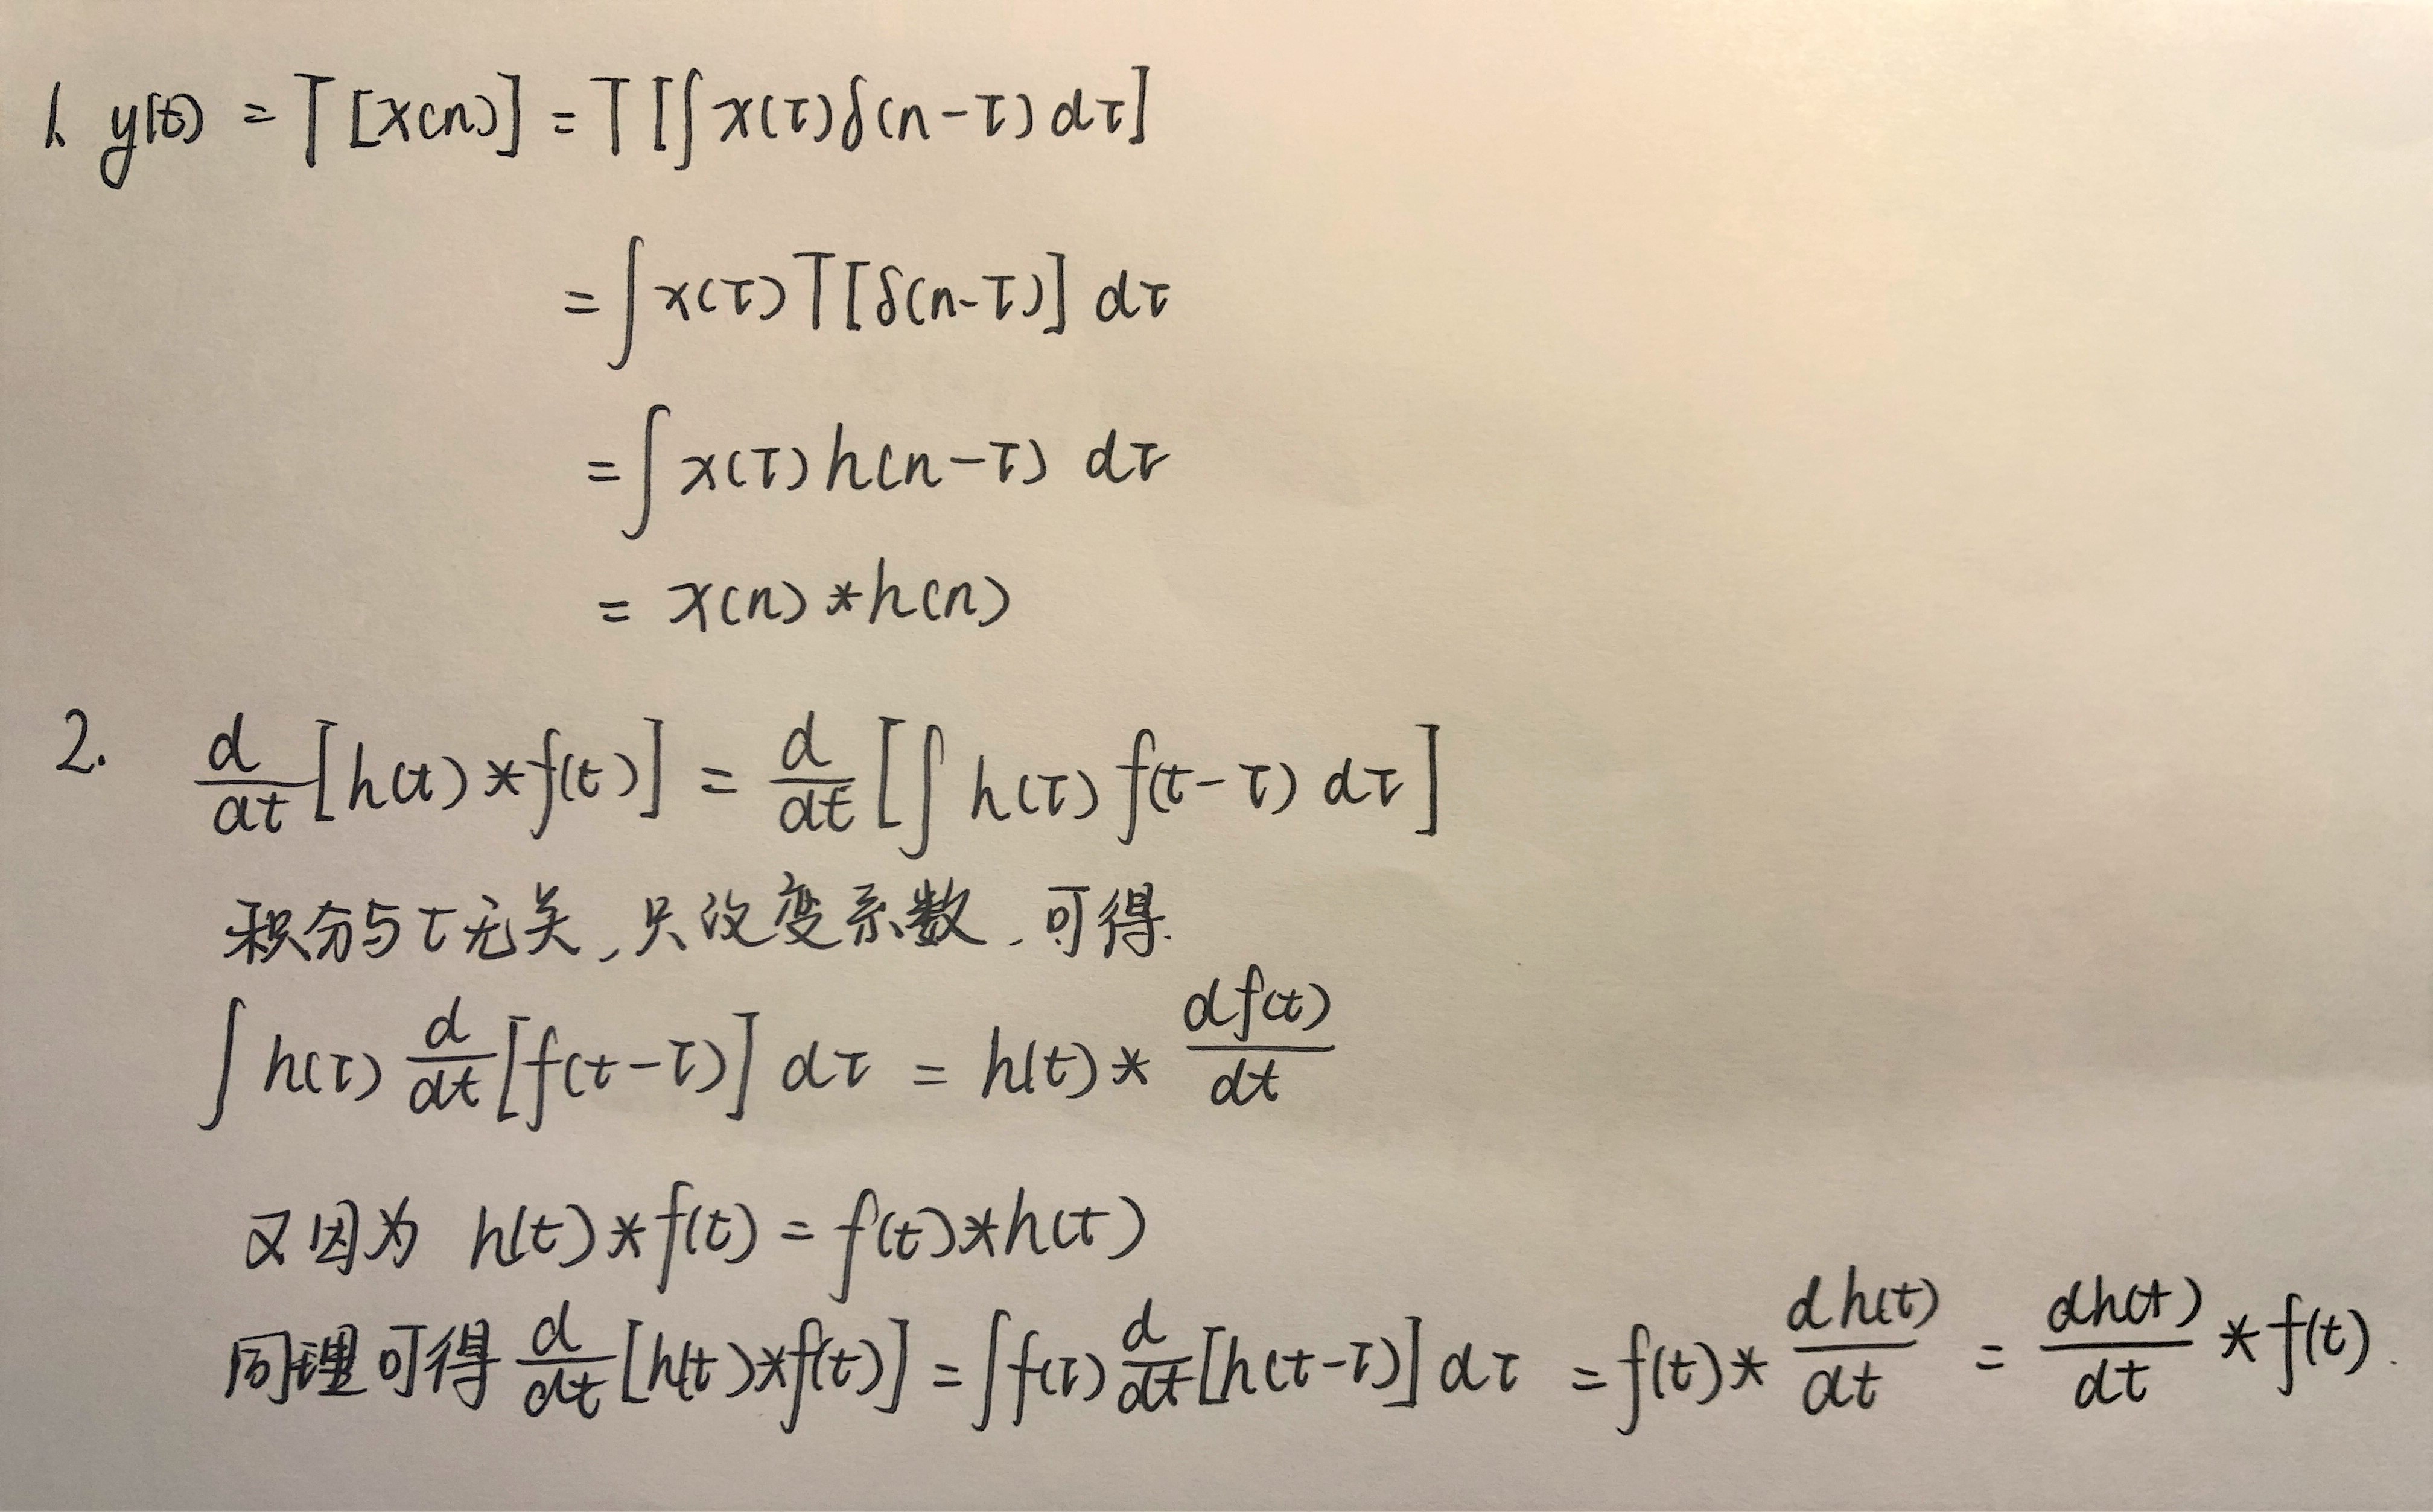 1. y(t) = T[x(n)] = T[∫x(τ)δ(n-τ)dτ]
= ∫x(τ)T[δ(n-τ)] dτ
= ∫x(τ)h(n-τ) dτ
= x(n)*h(n)
2. d/dt[h(t)*f(t)] = d/dt[∫h(τ)f(t-τ)dτ]
积分与τ无关,只改变系数,可得.
∫h(τ) d/dt[f(t-τ)]dτ = h(t)* df(t)/dt
又因为 h(t)*f(t) = f(t)*h(t)
同理可得 d/dt[h(t)*f(t)] = ∫f(τ) d/dt[h(t-τ)]dτ = f(t)* dh(t)/dt = dh(t)/dt *f(t).